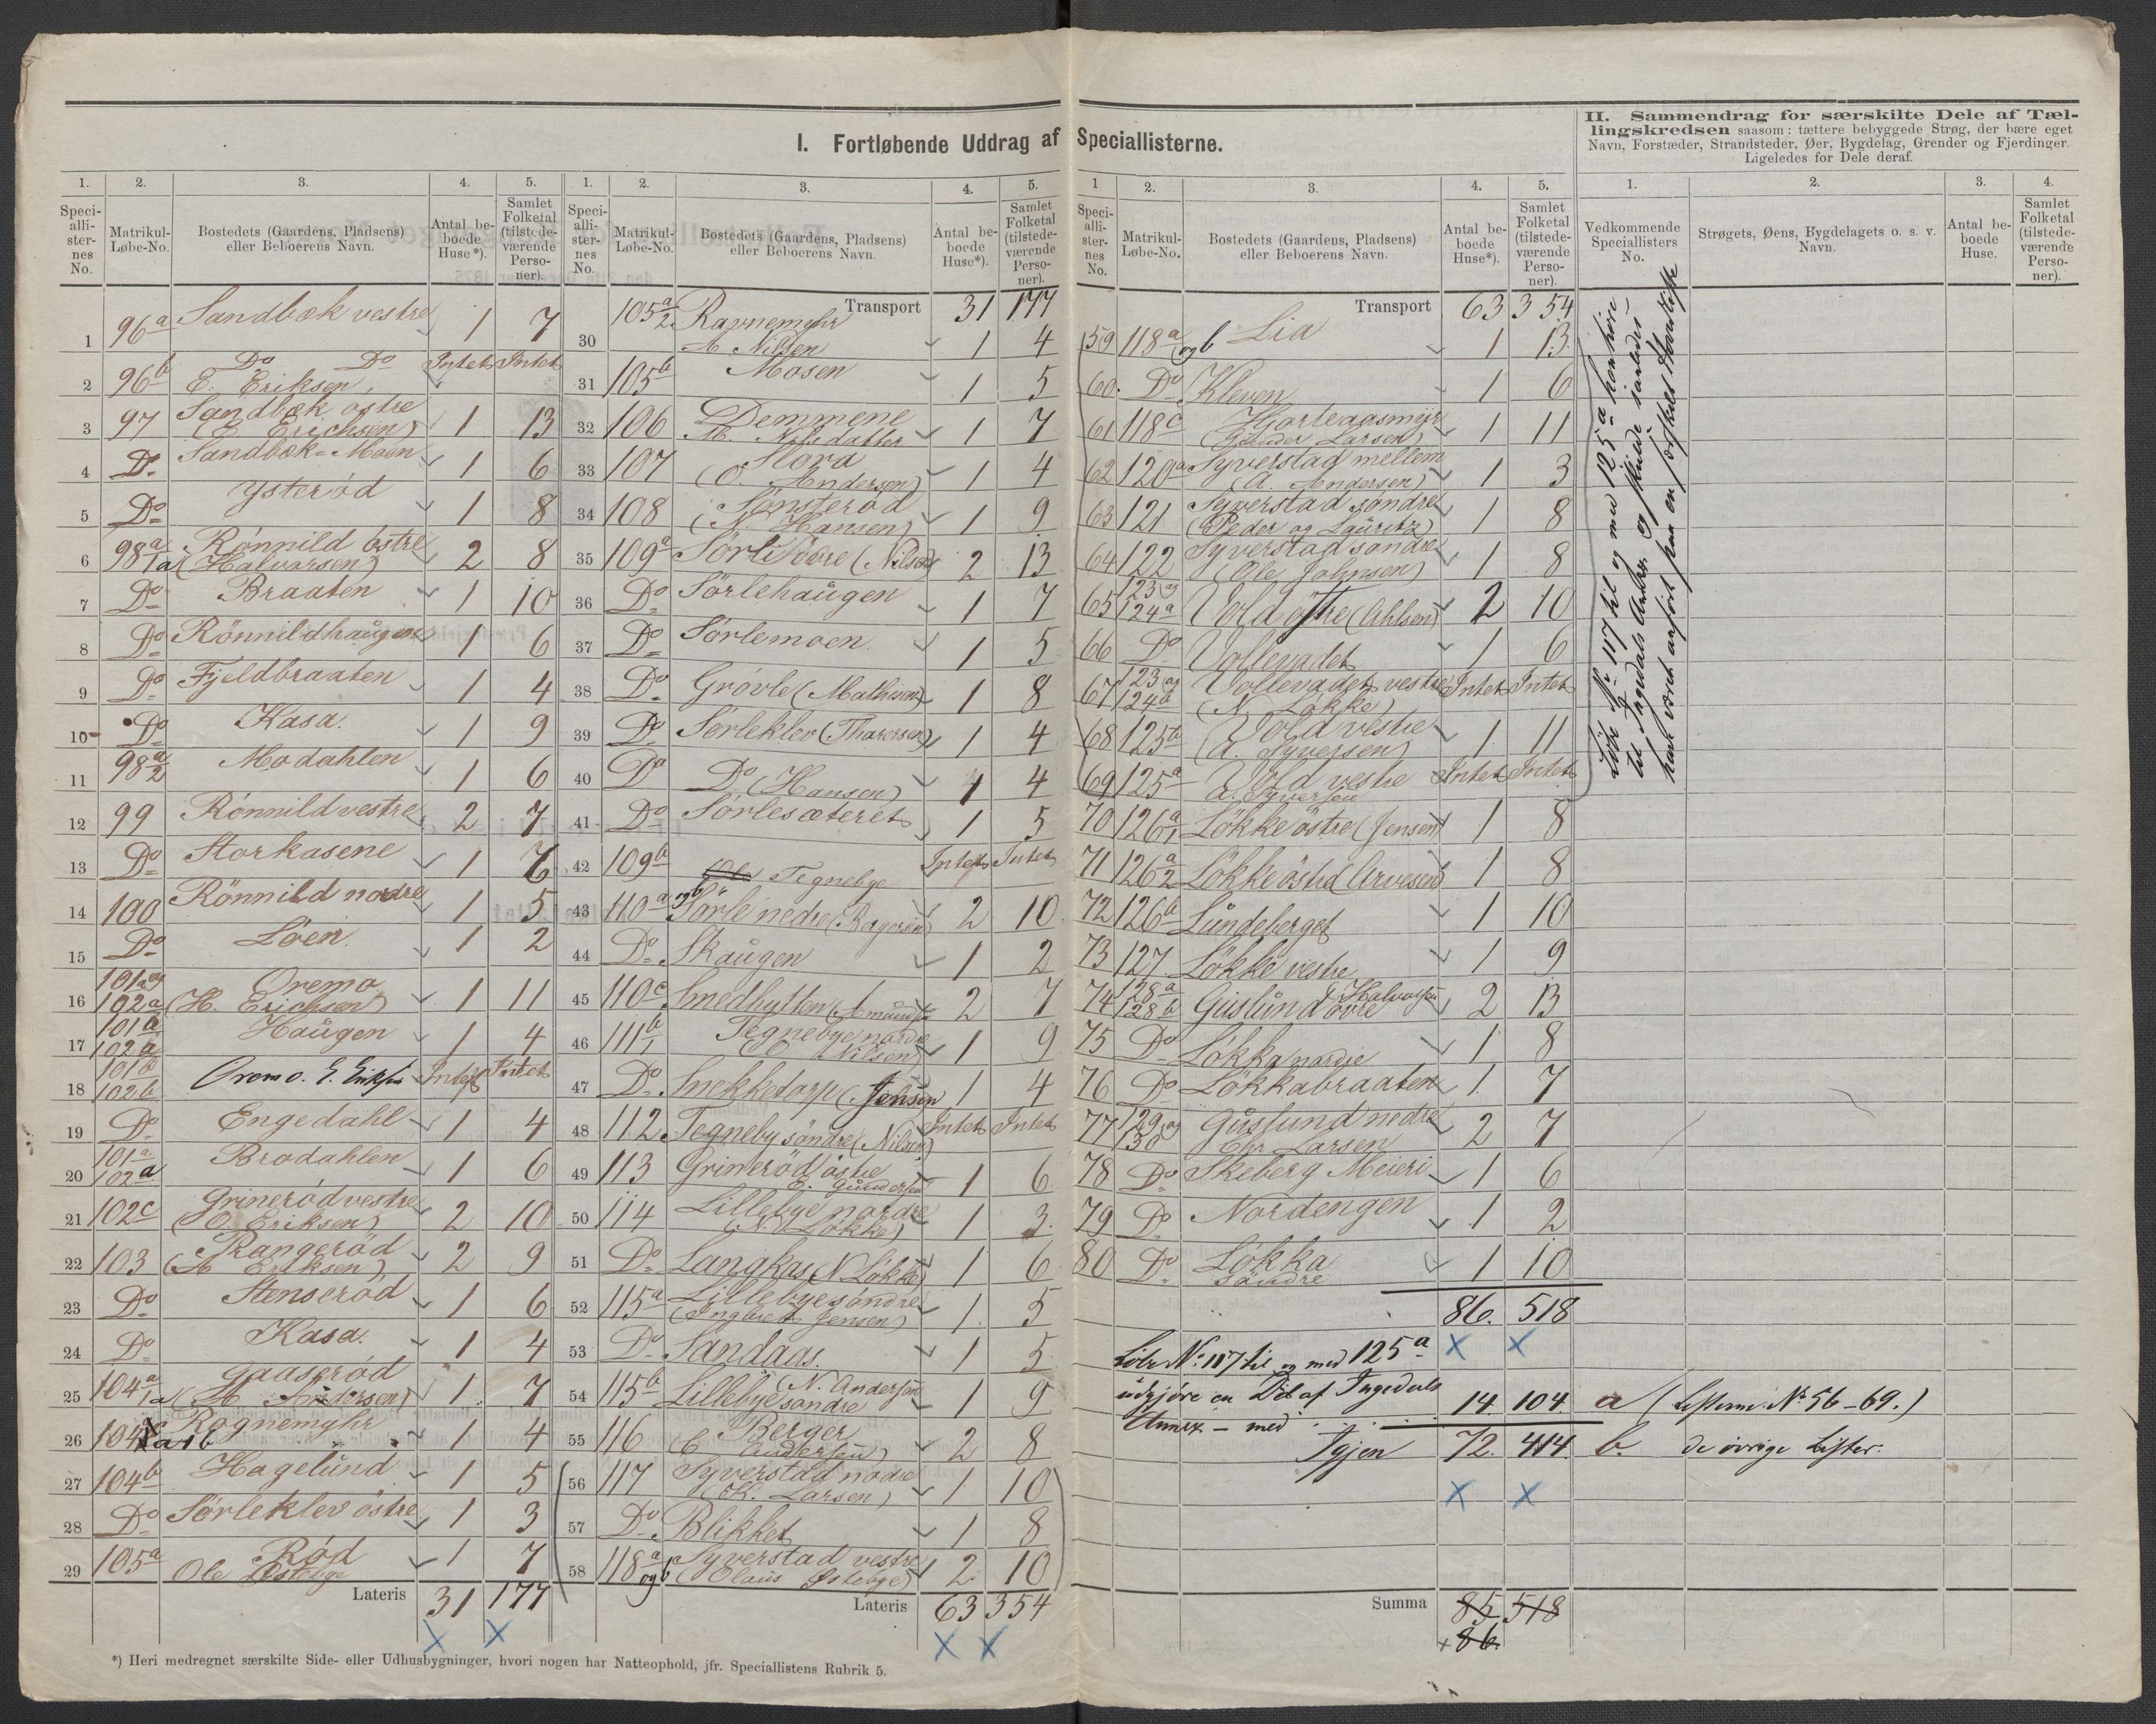 I. Fortløbende Uddrag af Speciallisterne.
II. Sammendrag for særskilte Dele af Tæl-
lingskredsen saasom: tættere bebyggede Strøg, der bære eget
Navn, Forstæder, Strandsteder, Øer, Bygdelag, Grender og Fjerdinger.
Ligeledes for Dele deraf.
1. 2. 3. 4. 5.
Speciallisternes No. Matrikul-Løbe-No. Bostedets (Gaardens, Pladsens) eller Beboerens Navn. Antal beboede Huse*). Samlet Folketal (tilstedeværende Personer).
1 96a Sandbæk vestre 1 7
2 96b Do Do E. Eriksen Intet Intet
3 97 Sandbæk östre (E. Erichsen) 1 13
4 Do Sandbæk-Moen 1 6
5 Do Ysteröd 1 8
6 98a/1a Rönnild östre (Halvorsen) 2 8
7 Do Braaten 1 10
8 Do Rönnildhaugen 1 6
9 Do Fjeldbraaten 1 4
10 Do Kasa. 1 9
11 98a/2 Modahlen 1 6
12 99 Rönnild vestre 2 7
13 Do Storkasene 1
14 100 Rönnild nordre 1 5
15 Do Löen. 1 2
16 101a og 102a Oremo (H. Erichsen) 1 11
17 101b 102a Haugen 1 4
18 101b 102b Oremo. E. Eriksen Intet Intet
19 Do Engedahl 1 4
20 101a 102a Brodahlen 1 6
21 102c Grineröd vestre (O. Eriksen) 2 10
22 103 Rangeröd (A Eriksen) 2 9
23 Do Stenseröd 1 6
24 Do Kasa. 1 4
25 104a/1a Gaaseröd (H. Andersen) 1 7
26 104a Rognemyhr 1 4
27 104b Hagelund 1 5
28 Do Sörleklev östre 1 3
29 105a Röd Ole Östebye 1 7
Lateris 31 177
1. 2. 3. 4. 5.
Speciallisternes No. Matrikul-Løbe-No. Bostedets (Gaardens, Pladsens) eller Beboerens Navn. Antal beboede Huse*). Samlet Folketal (tilstedeværende Personer).
Transport 31 177
30 105a/2 Ravnemyhr A Nilsen 1 4
31 105b Mosen 1 5
32 106 Demmene M. Nilsdatter 1 7
33 107 Hord (O. Andersen) 1 4
34 108 Sönsteröd (N. Hansen) 1 9
35 109a Sörli övre (Nilsen) 2 13
36 Do Sörlehaugen 1 7
37 Do Sörlemoen 1 5
38 Do Grövle (Mathisen) 1 8
39 Do Sörleklev (Thoresen) 1 4
40 Do Do (Hansen) 1 4
41 Do Sörlesæteret 1 5
42 109b Tegnebye Intet Intet
43 110a og b Sörle nedre 2 10
44 Do Skaugen 1 2
45 110c Smedhytten (Amundsen) 2 7
46 111b/1 Tegnebye nordre Nilsen) 1 9
47 Do Snekketorp (Jensen 1 4
48 112 Tegneby söndre (Nilsen) Intet Intet
49 113 Grineröd östre E. Gundersen 1 6
50 114 Lillebye nordre (N. Lökke) 1 3
51 Do Langkas (N Lökke) 1 6
52 115a Lillebye söndre (Ingbret Jensen) 1 5
53 Do Sandaas. 1 5
54 115b Lillebye söndre (N. Andersen 1 9
55 116 Berger (C. Andersen) 2 8
56 117 Syverstad nodre (K. Larsen) 1 10
57 Do Blikket 1 8
58 118a og b Syverstad vestre (Olaus Östebye) 2 10
Lateris 63 354
1 2. 3. 4. 5.
Speciallisternes No. Matrikul-Løbe-No. Bostedets (Gaardens, Pladsens) eller Beboerens Navn. Antal beboede Huse*). Samlet Folketal (tilstedeværende Personer).
Transport 63 354
59 118a og b Lia 1 13
60. Do Kleven 1 6
61 118c Hjorteaasmyr (Gunder Larsen) 1 11
62 120a Syverstad mellem (A. Andersen) 1 3
63 121 Syverstad söndre (Peder og Lauritz) 1 8
64 122 Syverstad söndre (Ole Johnsen) 1 8
65 123 og 124a Vold östre (Ahlsen) 2 10
66 Do Vollevadet 1 6
67 123 og 124b Vollevadet vestre (N. Lökke) Intet Intet
68 125b Vold vestre (A. Syversen) 1 11
69 125a Vold vestre A. Syversen Intet Intet
70 126a/1 Lökke östre (Jensen) 1 8
71 126a/2 Lökke östre (Arvesen) 1 8
72 126b Lundeberget 1 10
73 127 Lökke vestre 1 9
74 128a 128b Guslund övre Halvorsen 2 13
75 Do Lökka nordre 1 8
76 Do Lökkabraaten 1 7
77 129 og 130 Guslund nedre Chr. Larsen 2 7
78 Do Skeberg Meieri 1 6
79 Do Nordengen 1 2
80 Do Lökka söndre 1 10
86. 518
Löbe No: 117 til og med 125a
udgjöre en Del af Ingedals 14. 104 a (Listerne No 56-69.)
Annex - med
Igjen 72. 414. b. de övrige Lister.
Summa 85 518
+86.
1. 2. 3. 4.
Vedkommende Speciallisters No. Strøgets, Øens, Bygdelagets o. s. v. Navn. Antal beboede Huse. Samlet Folketal (tilstedeværende Personer).
Löbe No 117 til og med 125a henhöre
til Ingedals Annex og skulde saaledes
have været anført paa en særskilt Hovedliste
*) Heri medregnet særskilte Side- eller Udhusbygninger, hvori nogen har Natteophold, jfr. Speciallistens Rubrik 5.